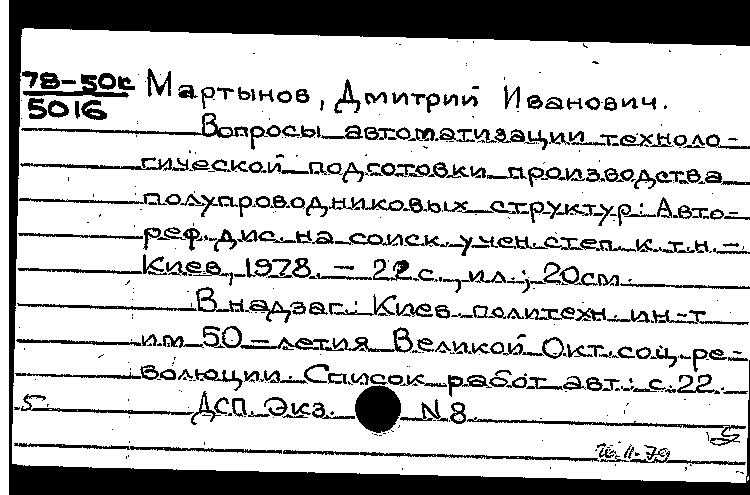 78-50к Мартынов, Дмитрий Иванович.
5016
Вопросы автоматизации техноло-
гической подготовки производства
полупроводниковых структур: Авто-
реф. дис. на соиск. учен. степ. к.т.н. -
Киев, 1978. - 22 с., ил.; 20см.
В надзаг.: Киев. политехн. ин-т
им 50-летия Великой Окт. соц. ре-
волюции. Список работ авт.: с. 22.
5 ДСП. Экз. N 8